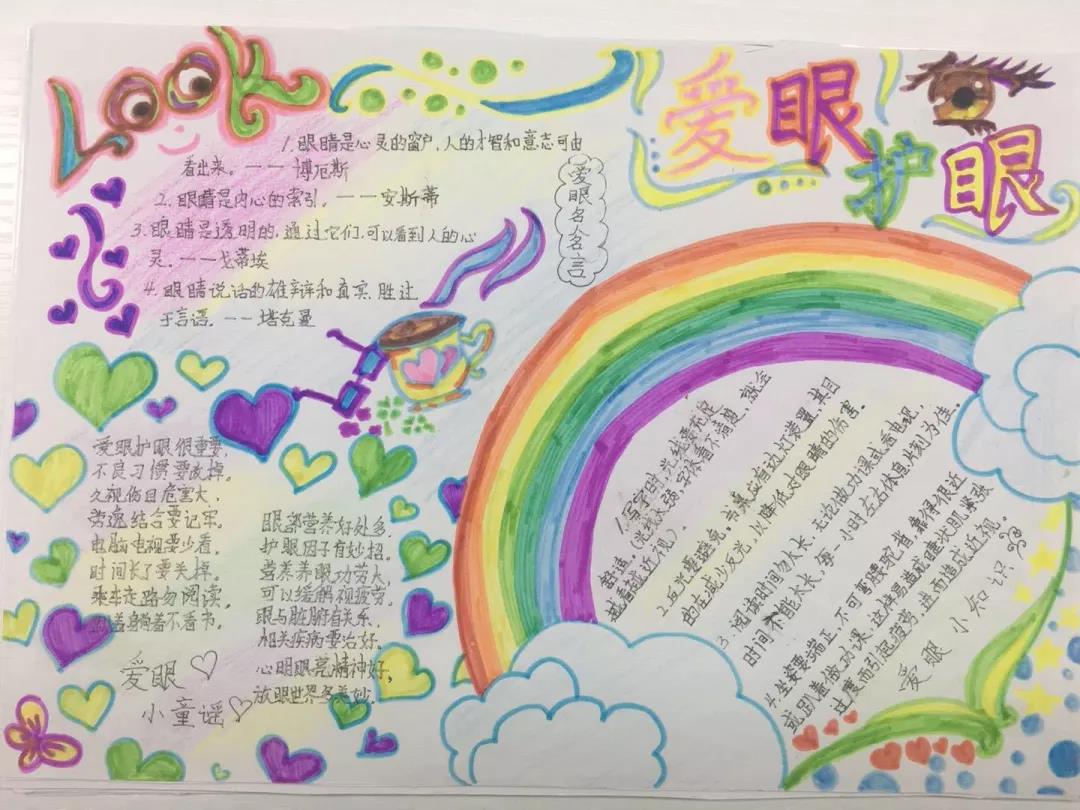 LOOK
爱眼护眼
爱眼名人名言
1.眼睛是心灵的窗户,人的才智和意志可由
看出来。———博厄斯
2.眼睛是内心的索引。———安斯蒂
3.眼睛是透明的,通过它们,可以看到人的心
灵。———戈蒂埃
4.眼睛说话的雄辩和真实,胜过
于言语。———塔克曼
爱眼护眼很重要,
不良习惯要改掉。
久视伤目危害大,
劳逸结合要记牢。
电脑电视要少看,
时间长了要关掉。
乘车走路勿阅读,
着不看书。
眼部营养好处多,
护眼因子有妙招。
营养养眼功劳大,
可以缓解视疲劳。
眼与脏腑有关系,
相关疾病要治好。
心明眼亮精神好,
放眼世界多美妙。
爱眼
小童谣
1.写字时,光线要充足
舒适(光线太强,字体看不清楚,就会
越看越近视)。
2.反光要避免。书桌应有边灯装置,其目
的在减少反光,以降低对眼睛的伤害。
3.阅读时间勿太长,无论做功课或看电视,
时间不能太长,每一小时左右休息片刻为佳。
4.坐姿要端正,不可弯腰驼背,靠得很近
或趴着做功课,这样易造成睫状肌紧张
过度而引起疲劳,进而造成近视。
爱眼小知识